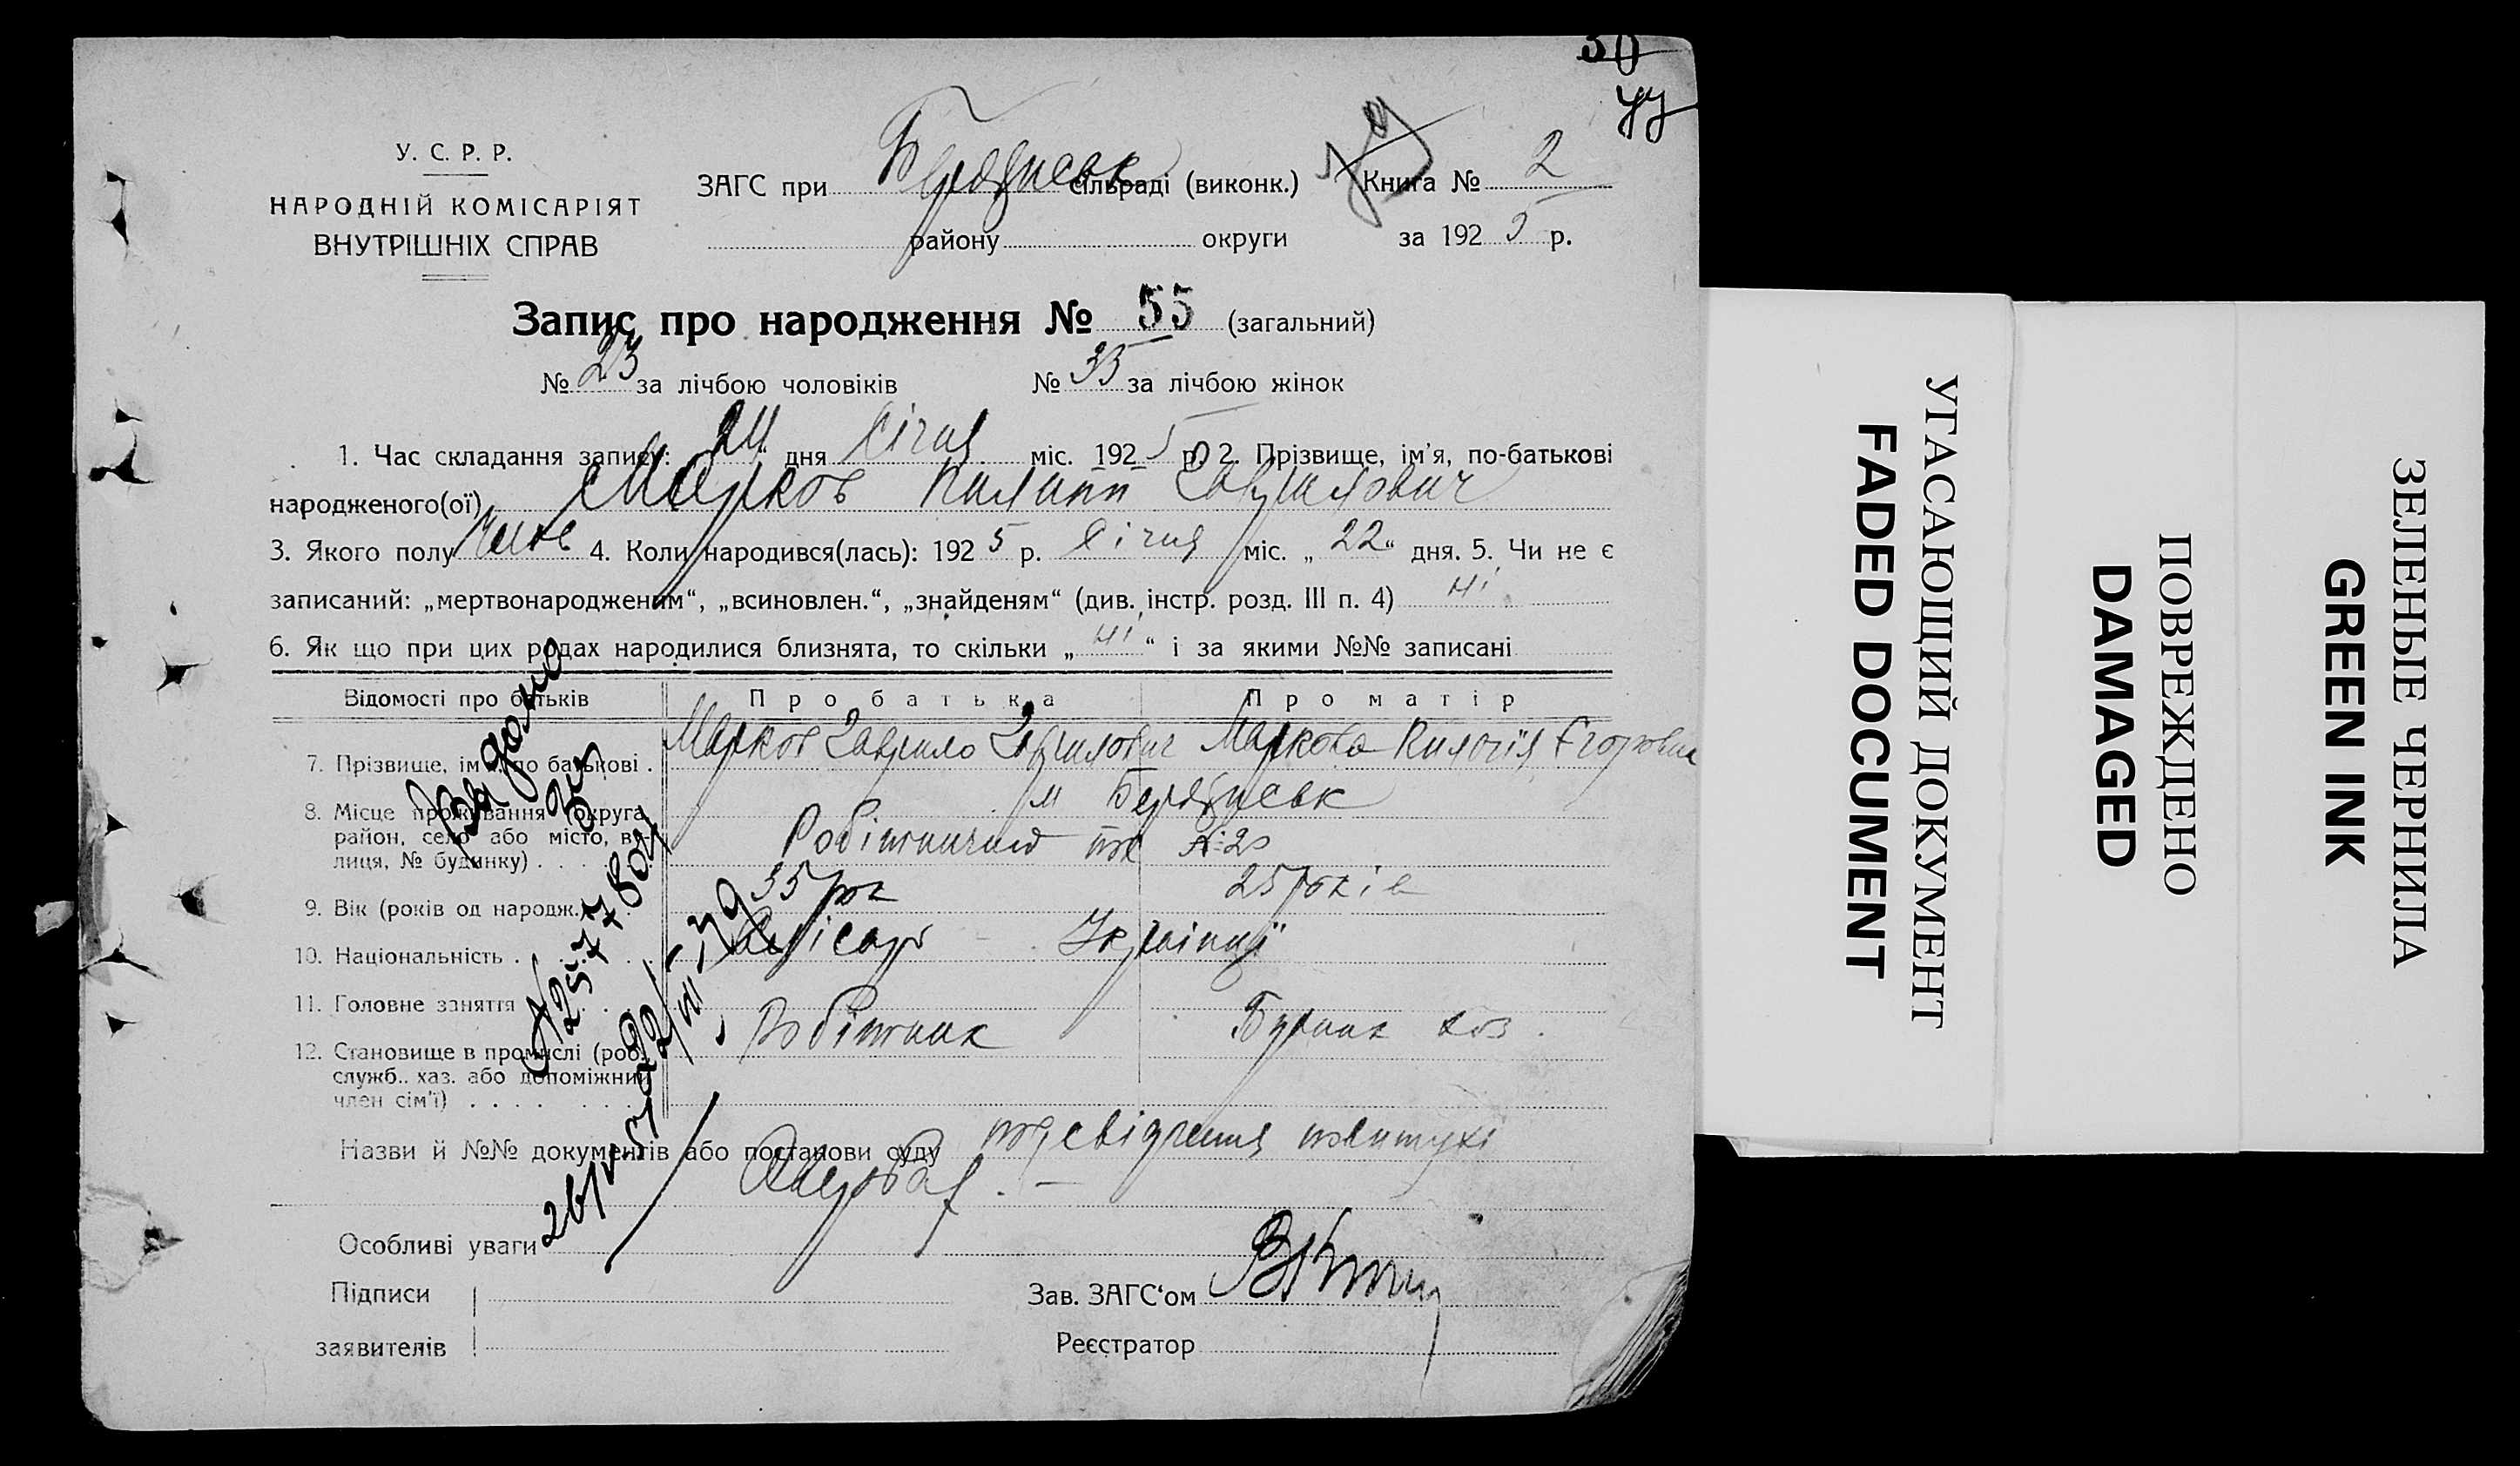 30
У. С. Р. Р.
НАРОДНІЙ КОМІСАРІЯТ
ВНУТРІШНІХ СПРАВ
ЗАГС при Бердянськ сільраді (виконк.) Книга № 2
району округи за 192 5 р.
Запис про народження № 55 (загальний)
№ 23 за лічбою чоловіків № 33 за лічбою жінок
1. Час складання запису: 24 дня Січня міс. 192 5 р. 2. Прізвище, ім'я, по-батькові
народженого(ої) Марков Гаврилович
3. Якого полу 4. Коли народився(лась): 192 5 р. Січня міс. „ 22 “ дня. 5. Чи не є
записаний: „мертвонародженим“, „всиновлен.“, „знайденям“ (див. інстр. розд. III п. 4) ні
6. Як що при цих родах народилися близнята, то скільки „ ні “ і за якими №№ записані
Відомості про батьків Про батька Про матір
7. Прізвище, ім'я, по батькові . Марков Гаврило Гаврилович Маркова Єгоровна
8. Місце проживання (округа, м Бердянськ
район, село або місто, ву-
лиця, № будинку) . . . 20
9. Вік (років од народж.) . . 35 рок 25 років
10. Національність . . . Українці
11. Головне заняття . . . Слюсарь
12. Становище в промислі (роб., Робітник
служб.. хаз. або допоміжний
член сім'ї) . . . .
Назви й №№ документів або постанови суду посвідчення повитухі
Особливі уваги
Підписи
заявителів
Зав. ЗАГС‘ом
Реєстратор
Видано
УГАСАЮЩИЙ ДОКУМЕНТ
FADED DOCUMENT
ПОВРЕЖДЕНО
DAMAGED
ЗЕЛЕНЫЕ ЧЕРНИЛА
GREEN INK